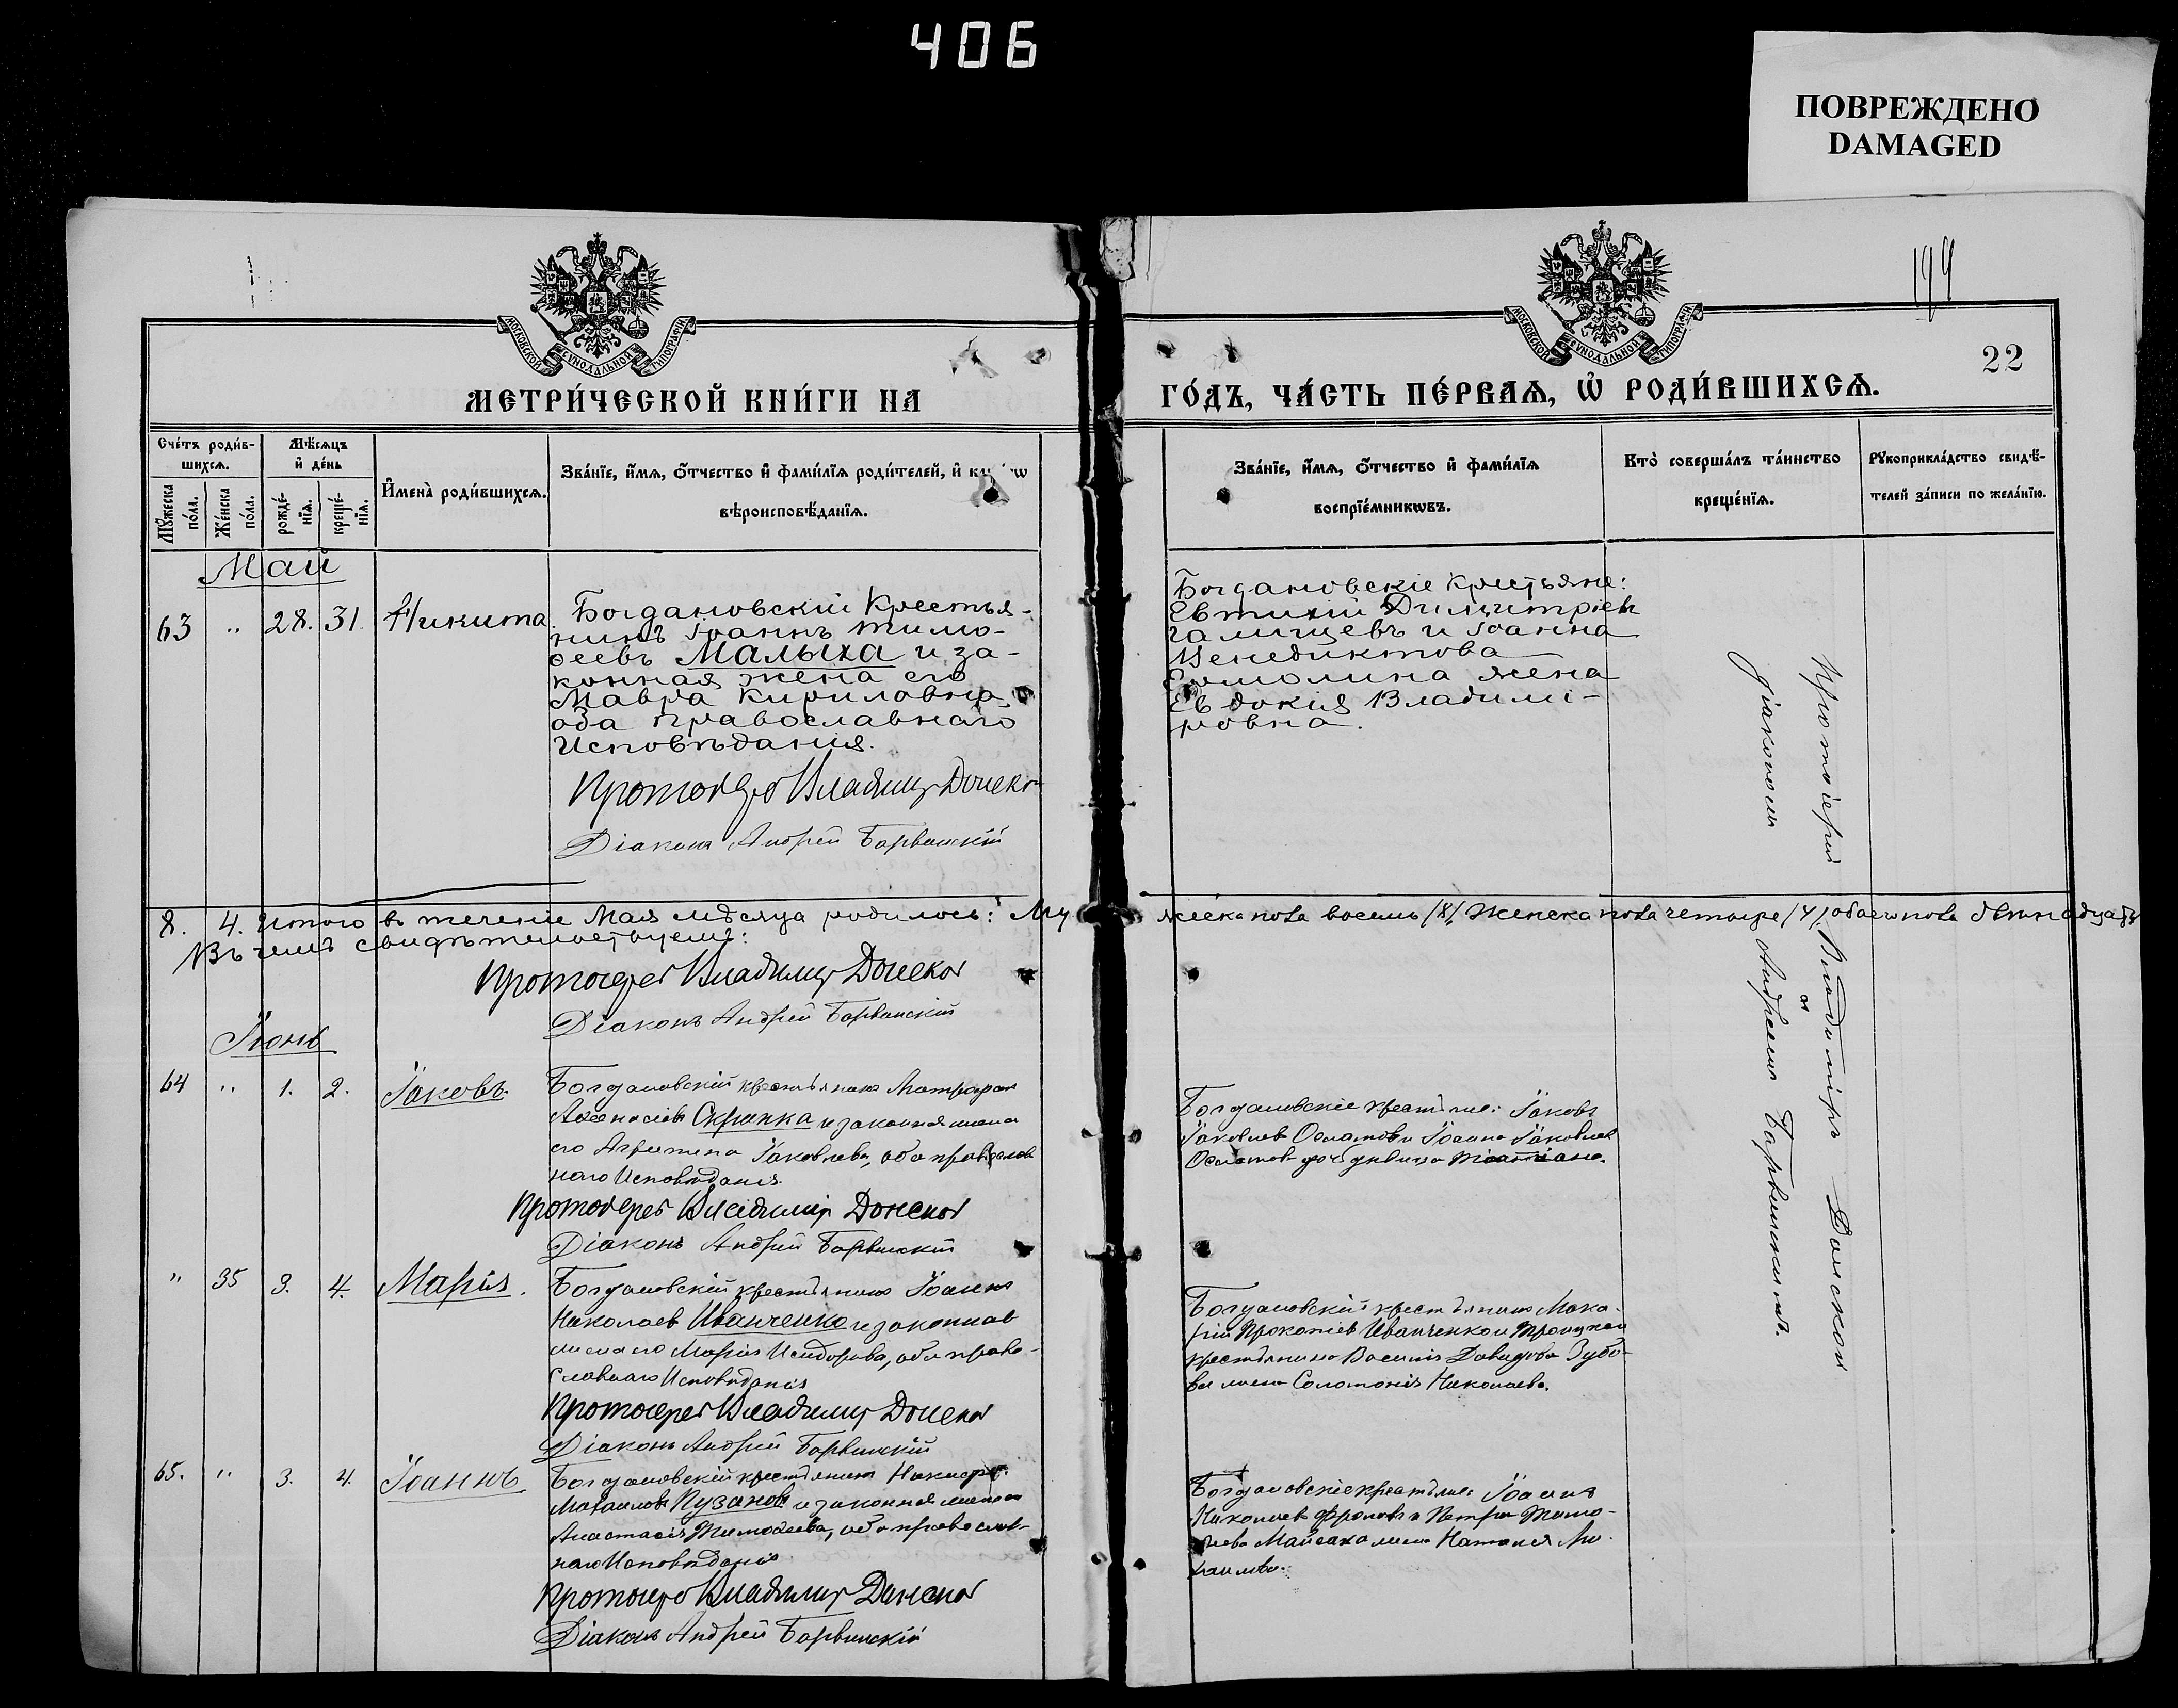 406
ПОВРЕЖДЕНО
DAMAGED
199
22
МОСКОВСКОЙ СѴНОДАЛЬНОЙ ТИПОГРАФІИ
МОСКОВСКОЙ СѴНОДАЛЬНОЙ ТИПОГРАФІИ
МЕТРИ́ЧЕСКОЙ КНИ́ГИ НА
ГО́ДЪ, ЧА́СТЬ ПЕ́РВАѦ, Ѡ҆ РОДИ́ВШИХСѦ.
Сче́тъ роди́в-
шихсѧ.
Мѣ́сѧцъ
и҆ де́нь
Мꙋ́жеска
по́ла.
Же́нска
по́ла.
рожде́-
нїѧ.
креще́-
нїѧ.
И҆мена̀ роди́вшихсѧ.
Зва́нїе, и҆́мѧ, ѻ҆́тчество и҆ фами́лїѧ роди́телей, и҆
вѣроисповѣ́данїѧ.
Зва́нїе, и҆́мѧ, ѻ҆́тчество и҆ фами́лїѧ
воспрїе́мникѡвъ.
Кто̀ соверша́лъ та́инство
креще́нїѧ.
Рꙋкоприкла́дство свидѣ́-
телей за́писи по жела́нїю.
Май
63 " 28. 31. Никита
Богдановскій Крестья-
нинъ Іоаннъ Тимо-
ѳеевъ Малыха и за-
конная жена его
Мавра Кириловна
оба православнаго
Исповѣданія.
Протоіерей Владимір Донской
Діаконъ Андрей Барвинскій
Богдановскіе крестьяне:
Евтихій Димитріевъ
Галицевъ и Іоанна
Венедиктова
Ермолина жена
Евдокия Владими-
ровна.
Протоіерей Владиміръ Донской
съ
діакономъ Андреемъ Барвинскимъ.
8. 4. Итого въ теченіе Мая мѣсяца родилось: Му
жеска пола восемь /8/, Женска пола четыре /4/, обоего пола двѣнадцать
Въ чемъ свидѣтельствуемъ:
Протоіерей Владимір Донской
Діаконъ Андрей Барвинскій
Іюнь
64 " 1. 2. Іаковъ.
Богдановскій крестьянинъ Митрофан
Аѳанасіевъ Скрипка и законная жена
его Агрипина Іаковлева, оба православ
наго Исповѣданія.
Протоіерей Владимір Донской
Діаконъ Андрей Барвинскій
Богдановскіе крестьяне: Іаковъ
Іаковлев и Іоанна Іаковлев
дочь дѣвица Татіана.
" 35 3. 4. Марія.
Богдановскій крестьянинъ Іоаннъ
Николаев Иванченко и законная
жена его Марія Исидорова, оба право-
славнаго Исповѣданія
Протоіерей Владимір Донской
Діаконъ Андрей Барвинскій
Богдановскій крестьянинъ Мака-
рій Прокопіев Иванченко и Троицкаго
крестьянина Василія Давидова Зубо-
ва жена Соломонія Николаева.
65. " 3. 4. Іоаннъ
Богдановскій крестьянинъ Никифоръ
Михаиловъ Пузановъ и законная жена его
Анастасія Тимоѳеева, оба православ-
наго Исповѣданія
Протоіерей Владимір Донской
Діаконъ Андрей Барвинскій
Богдановскіе крестьяне: Іоаннъ
Николаев Фроловъ и Петра Тимо-
ѳеева жена Наталія Ми-
хаилова.